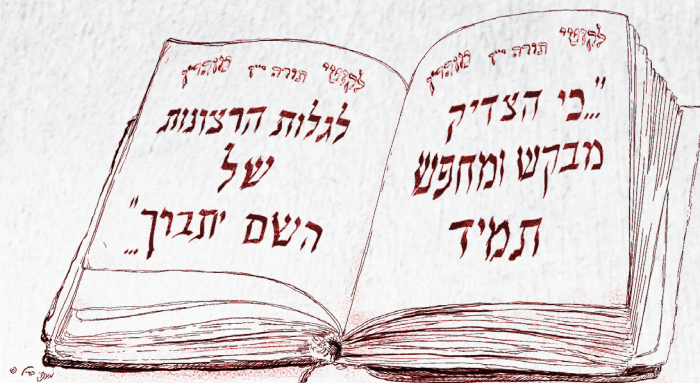 לקוטי תורה י״ז מוהר״ן
"...כי הצדיק
מבקש ומחפש
תמיד
לקוטי תורה י״ז מוהר״ן
לגלות הרצונות
של
השם יתברך"...
©